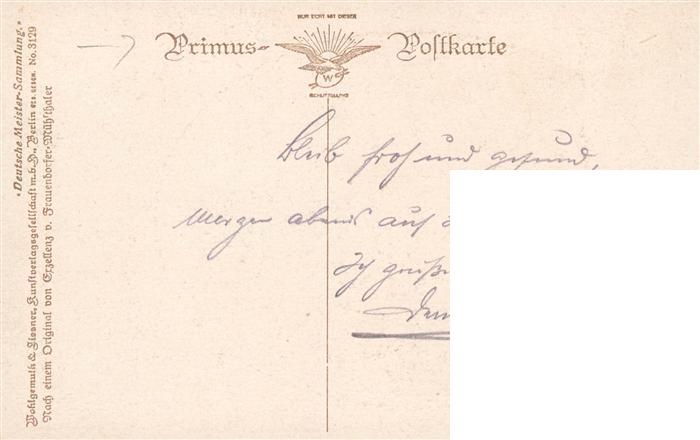 NUR ECHT MIT DIESER
Primus- Postkarte
W
SCHUTZMARKE
"Deutsche Meister-Sammlung."
Wohlgemuth & Lissner, Kunstverlagsgesellschaft m.b.H., Berlin No. 3129
Nach einem Original von Exzellenz v. Frauendorfer-Mühlthaler
Bleib froh und gesund,
Morgen abends auf
Ich grüße